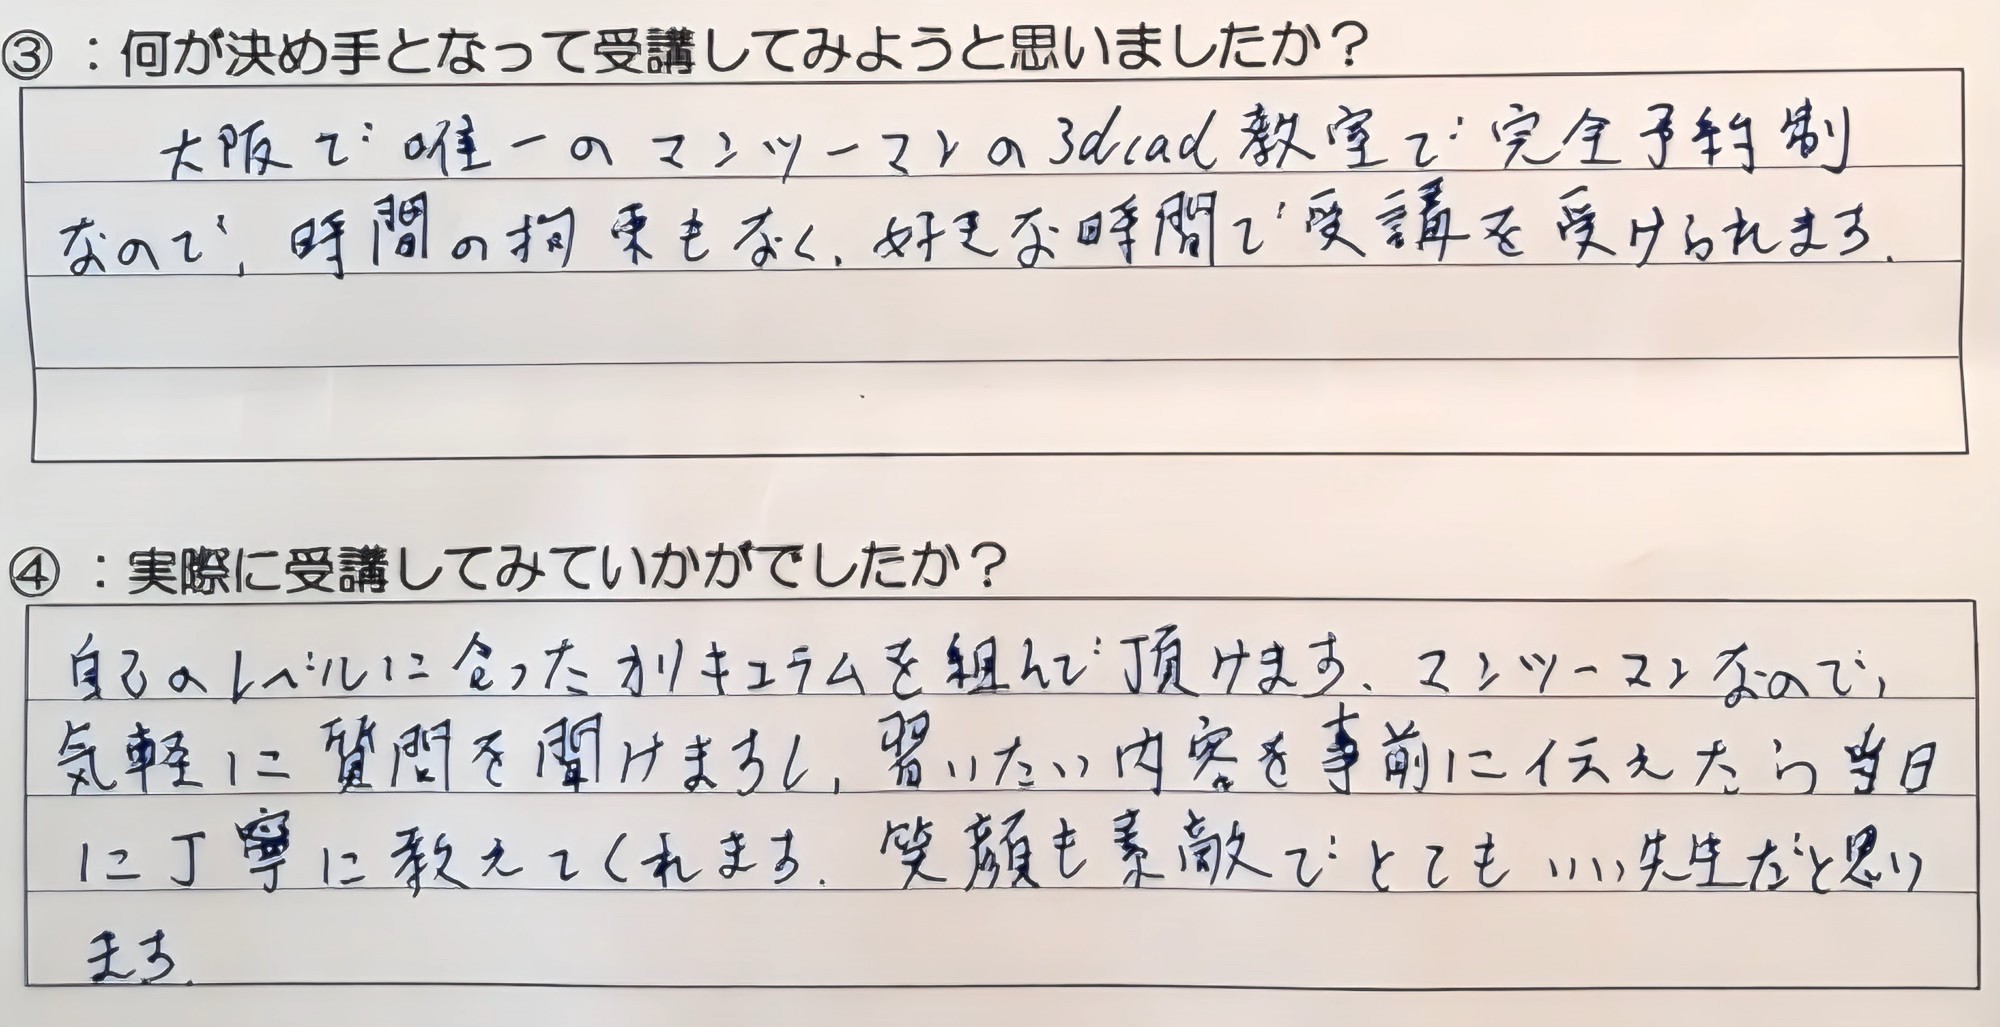 ③：何が決め手となって受講してみようと思いましたか？
大阪で唯一のマンツーマンの3dcad教室で完全予約制
なので、時間の拘束もなく、好きな時間で受講を受けられます。
④：実際に受講してみていかがでしたか？
自己のレベルに合ったカリキュラムを組んで頂けます、マンツーマンなので、
気軽に質問を聞けますし、習いたい内容を事前に伝えたら当日
に丁寧に教えてくれます。笑顔も素敵でとてもいい先生だと思い
ます。